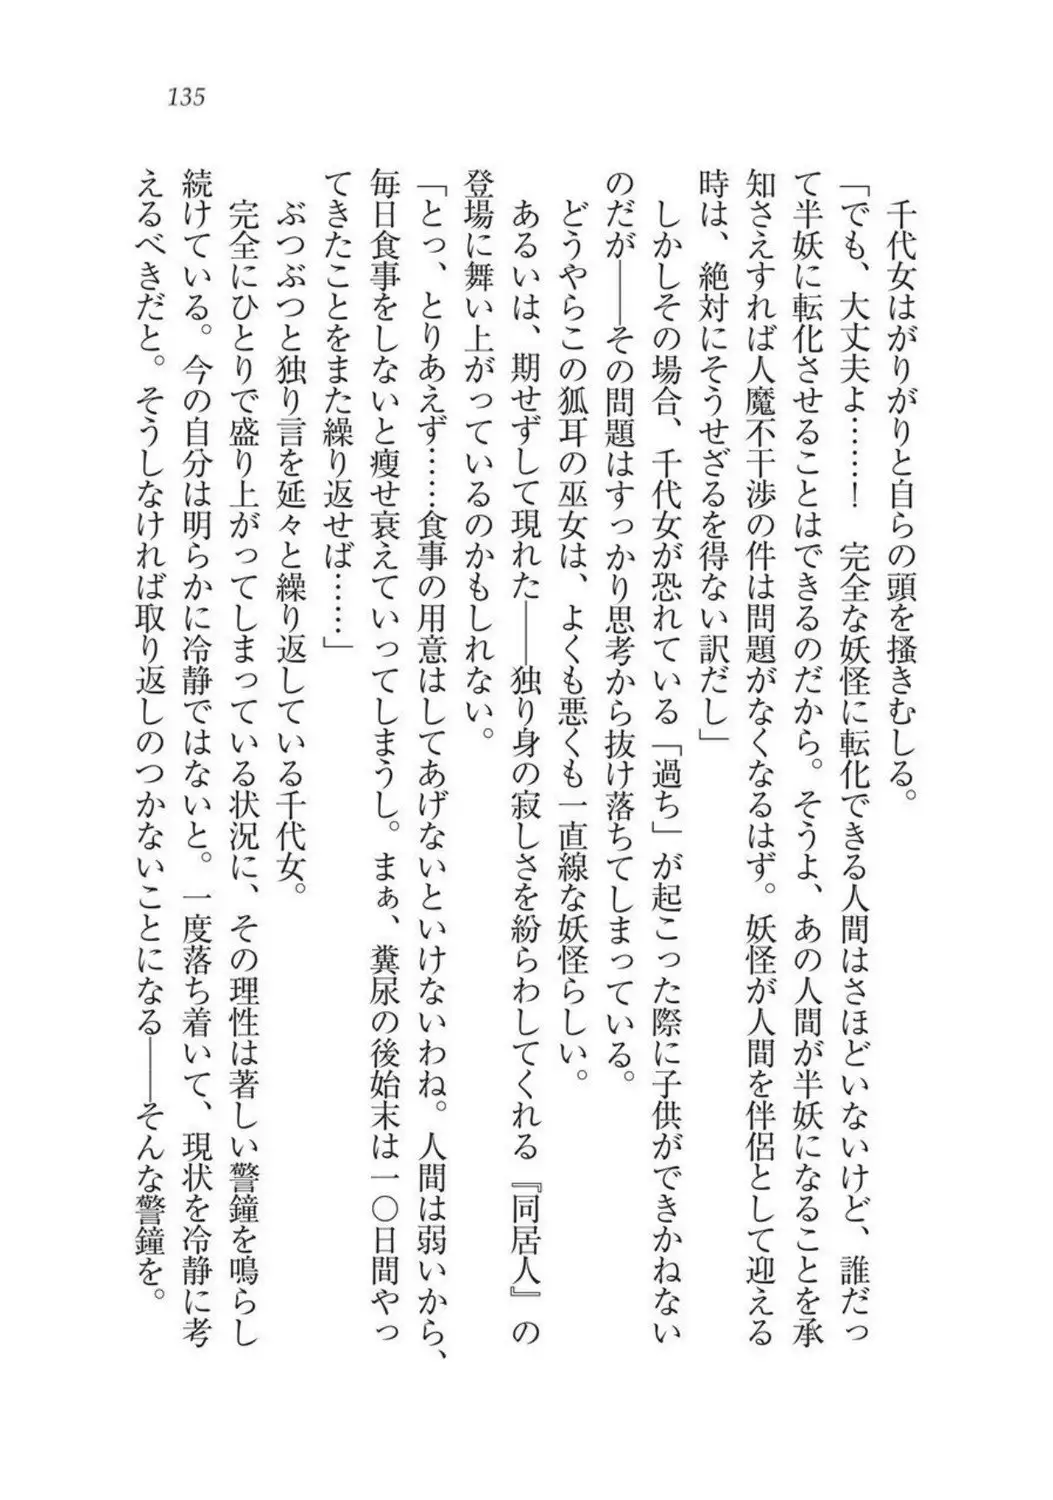 135
千代女はがりがりと自らの頭を掻きむしる。
「でも、大丈夫よ……！　完全な妖怪に転化できる人間はさほどいないけど、誰だっ
て半妖に転化させることはできるのだから。そうよ、あの人間が半妖になることを承
知さえすれば人魔不干渉の件は問題がなくなるはず。妖怪が人間を伴侶として迎える
時は、絶対にそうせざるを得ない訳だし」
しかしその場合、千代女が恐れている「過ち」が起こった際に子供ができかねない
のだが――その問題はすっかり思考から抜け落ちてしまっている。
どうやらこの狐耳の巫女は、よくも悪くも一直線な妖怪らしい。
あるいは、期せずして現れた――独り身の寂しさを紛らわしてくれる『同居人』の
登場に舞い上がっているのかもしれない。
「とっ、とりあえず……食事の用意はしてあげないといけないわね。人間は弱いから、
毎日食事をしないと痩せ衰えていってしまうし。まぁ、糞尿の後始末は一〇日間やっ
てきたことをまた繰り返せば……」
ぶつぶつと独り言を延々と繰り返している千代女。
完全にひとりで盛り上がってしまっている状況に、その理性は著しい警鐘を鳴らし
続けている。今の自分は明らかに冷静ではないと。一度落ち着いて、現状を冷静に考
えるべきだと。そうしなければ取り返しのつかないことになる――そんな警鐘を。